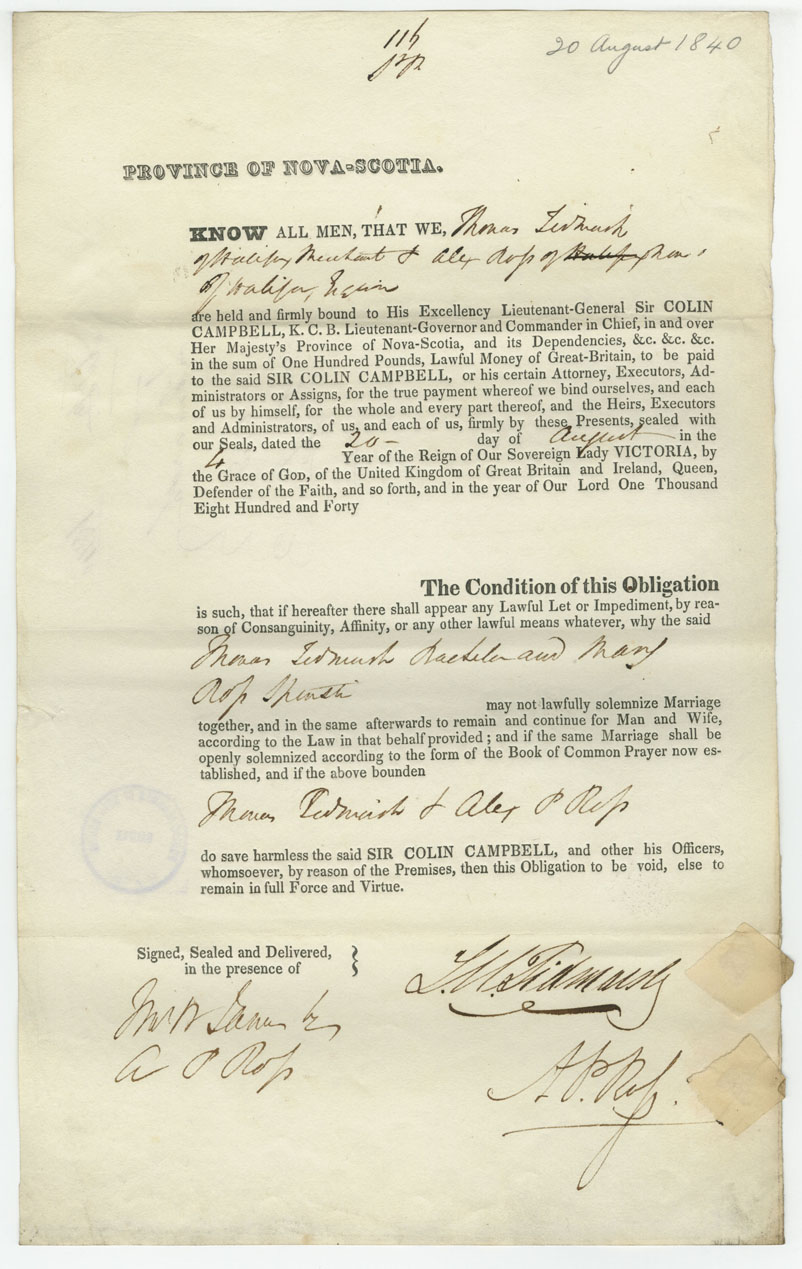 116
20 August 1840
PROVINCE OF NOVA-SCOTIA.
KNOW ALL MEN, THAT WE, Thomas Tidmarsh
of Halifax Merchant & Alex Ross of Halifax
of Halifax,
are held and firmly bound to His Excellency Lieutenant-General Sir COLIN
CAMPBELL, K. C. B. Lieutenant-Governor and Commander in Chief, in and over
Her Majesty's Province of Nova-Scotia, and its Dependencies, &c. &c. &c.
in the sum of One Hundred Pounds, Lawful Money of Great-Britain, to be paid
to the said SIR COLIN CAMPBELL, or his certain Attorney, Executors, Ad-
ministrators or Assigns, for the true payment whereof we bind ourselves, and each
of us by himself, for the whole and every part thereof, and the Heirs, Executors
and Administrators, of us, and each of us, firmly by these Presents, sealed with
our Seals, dated the 20- day of August in the
4 Year of the Reign of Our Sovereign Lady VICTORIA, by
the Grace of GOD, of the United Kingdom of Great Britain and Ireland, Queen,
Defender of the Faith, and so forth, and in the year of Our Lord One Thousand
Eight Hundred and Forty
The Condition of this Obligation
is such, that if hereafter there shall appear any Lawful Let or Impediment, by rea-
son of Consanguinity, Affinity, or any other lawful means whatever, why the said
Thomas Tidmarsh Bachelor and Mary
Ross Spinster
may not lawfully solemnize Marriage
together, and in the same afterwards to remain and continue for Man and Wife,
according to the Law in that behalf provided ; and if the same Marriage shall be
openly solemnized according to the form of the Book of Common Prayer now es-
tablished, and if the above bounden
Thomas Tidmarsh & Alex P Ross
do save harmless the said SIR COLIN CAMPBELL, and other his Officers,
whomsoever, by reason of the Premises, then this Obligation to be void, else to
remain in full Force and Virtue.
Signed, Sealed and Delivered,
in the presence of
T. W. Tidmarsh
A P Ross
A. P. Ross.